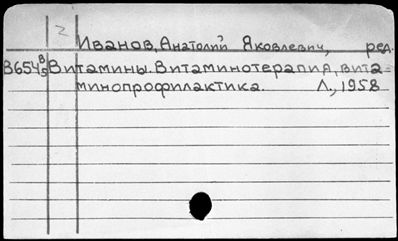 2
Иванов, Анатолий Яковлевич, ред.
Витамины. Витаминотерапия, вита-
минопрофилактика. Л., 1958